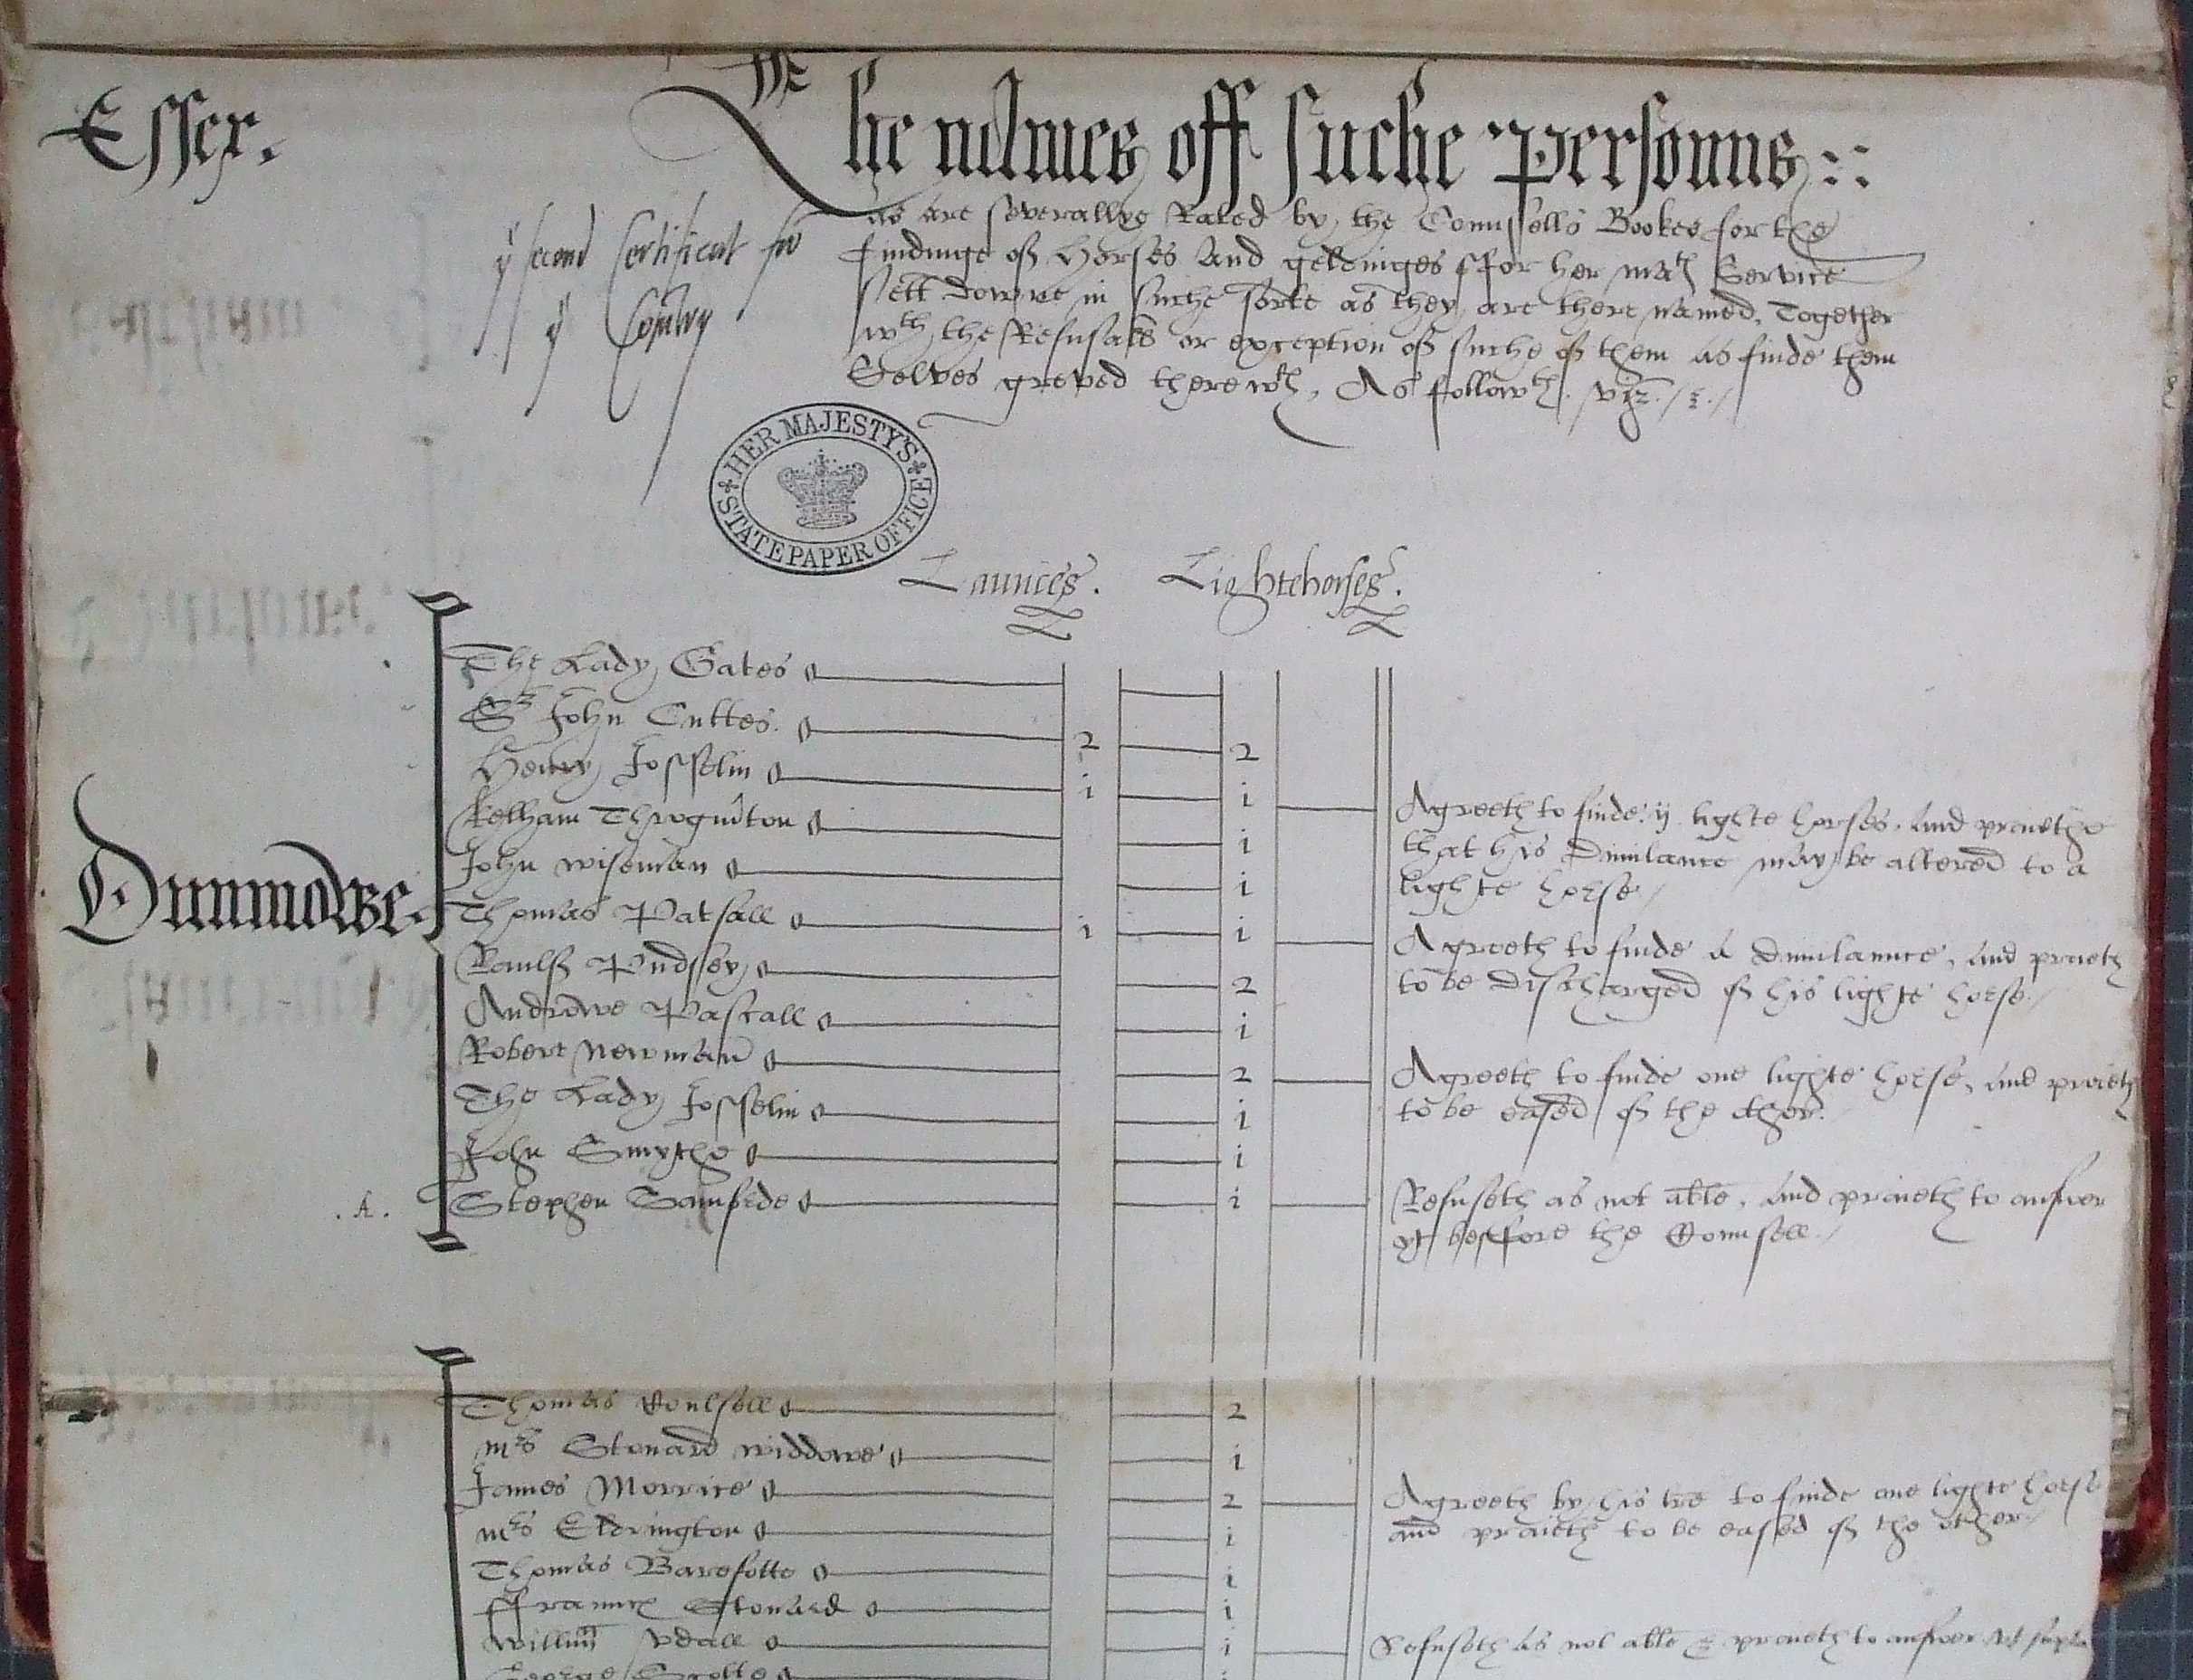 Essex.
The names off suche personns
as are severallye Rated by the Counsells Bookes for the
findinge of Horses and geldinges ffor her matꝭ Service
sett downe in suche sorte as they are there named, Together
wth the Refusalls or exception of suche of them as finde them
Selves greved therewth, As followth. viz.
yͤ second Certificat for
yͤ Contrey
HER MAJESTY'S
STATE PAPER OFFICE
Launces. Lightehorses.
Dunmowe.
The Lady Gates
Sr John Cuttes. 2 2
Henry Josselin i i Agreeth to finde ij lighte horses, and praiethe
that his Dimilance may be altered to a
lighte horse
Kelham Throgmton i
John wiseman i
Thomas Patsall i i Agreeth to finde a Dimilaunce, and praieth
to be Discharged of his lighte horse
Raulf Pudsey 2
Andrewe Pascall i
Robert Newman 2 Agreeth to finde one lighte horse, and praieth
to be eased of the other.
The Lady Josselin i
John Smythe i
.A. Stephen Samforde i Refuseth as not able, and praieth to answer
yt beffore the Counsell
Thomas Coulsell 2
mrs Stonard widdowe i
James Morrice 2 Agreeth by his lre to finde one lighte horse
and praieth to be eased of the other
mrs Eldrington i
Thomas Barefotte i
ffrauncs Stonard i
Willm Vdall i Refuseth as not able & praieth to answer vt supra
George Scotte